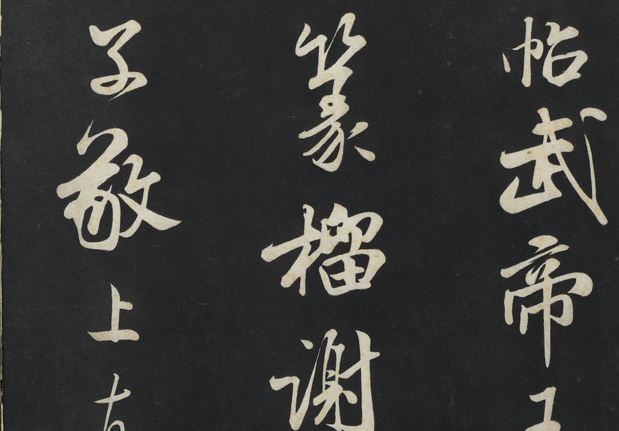 帖武帝王
篆榴謝
子敬上有